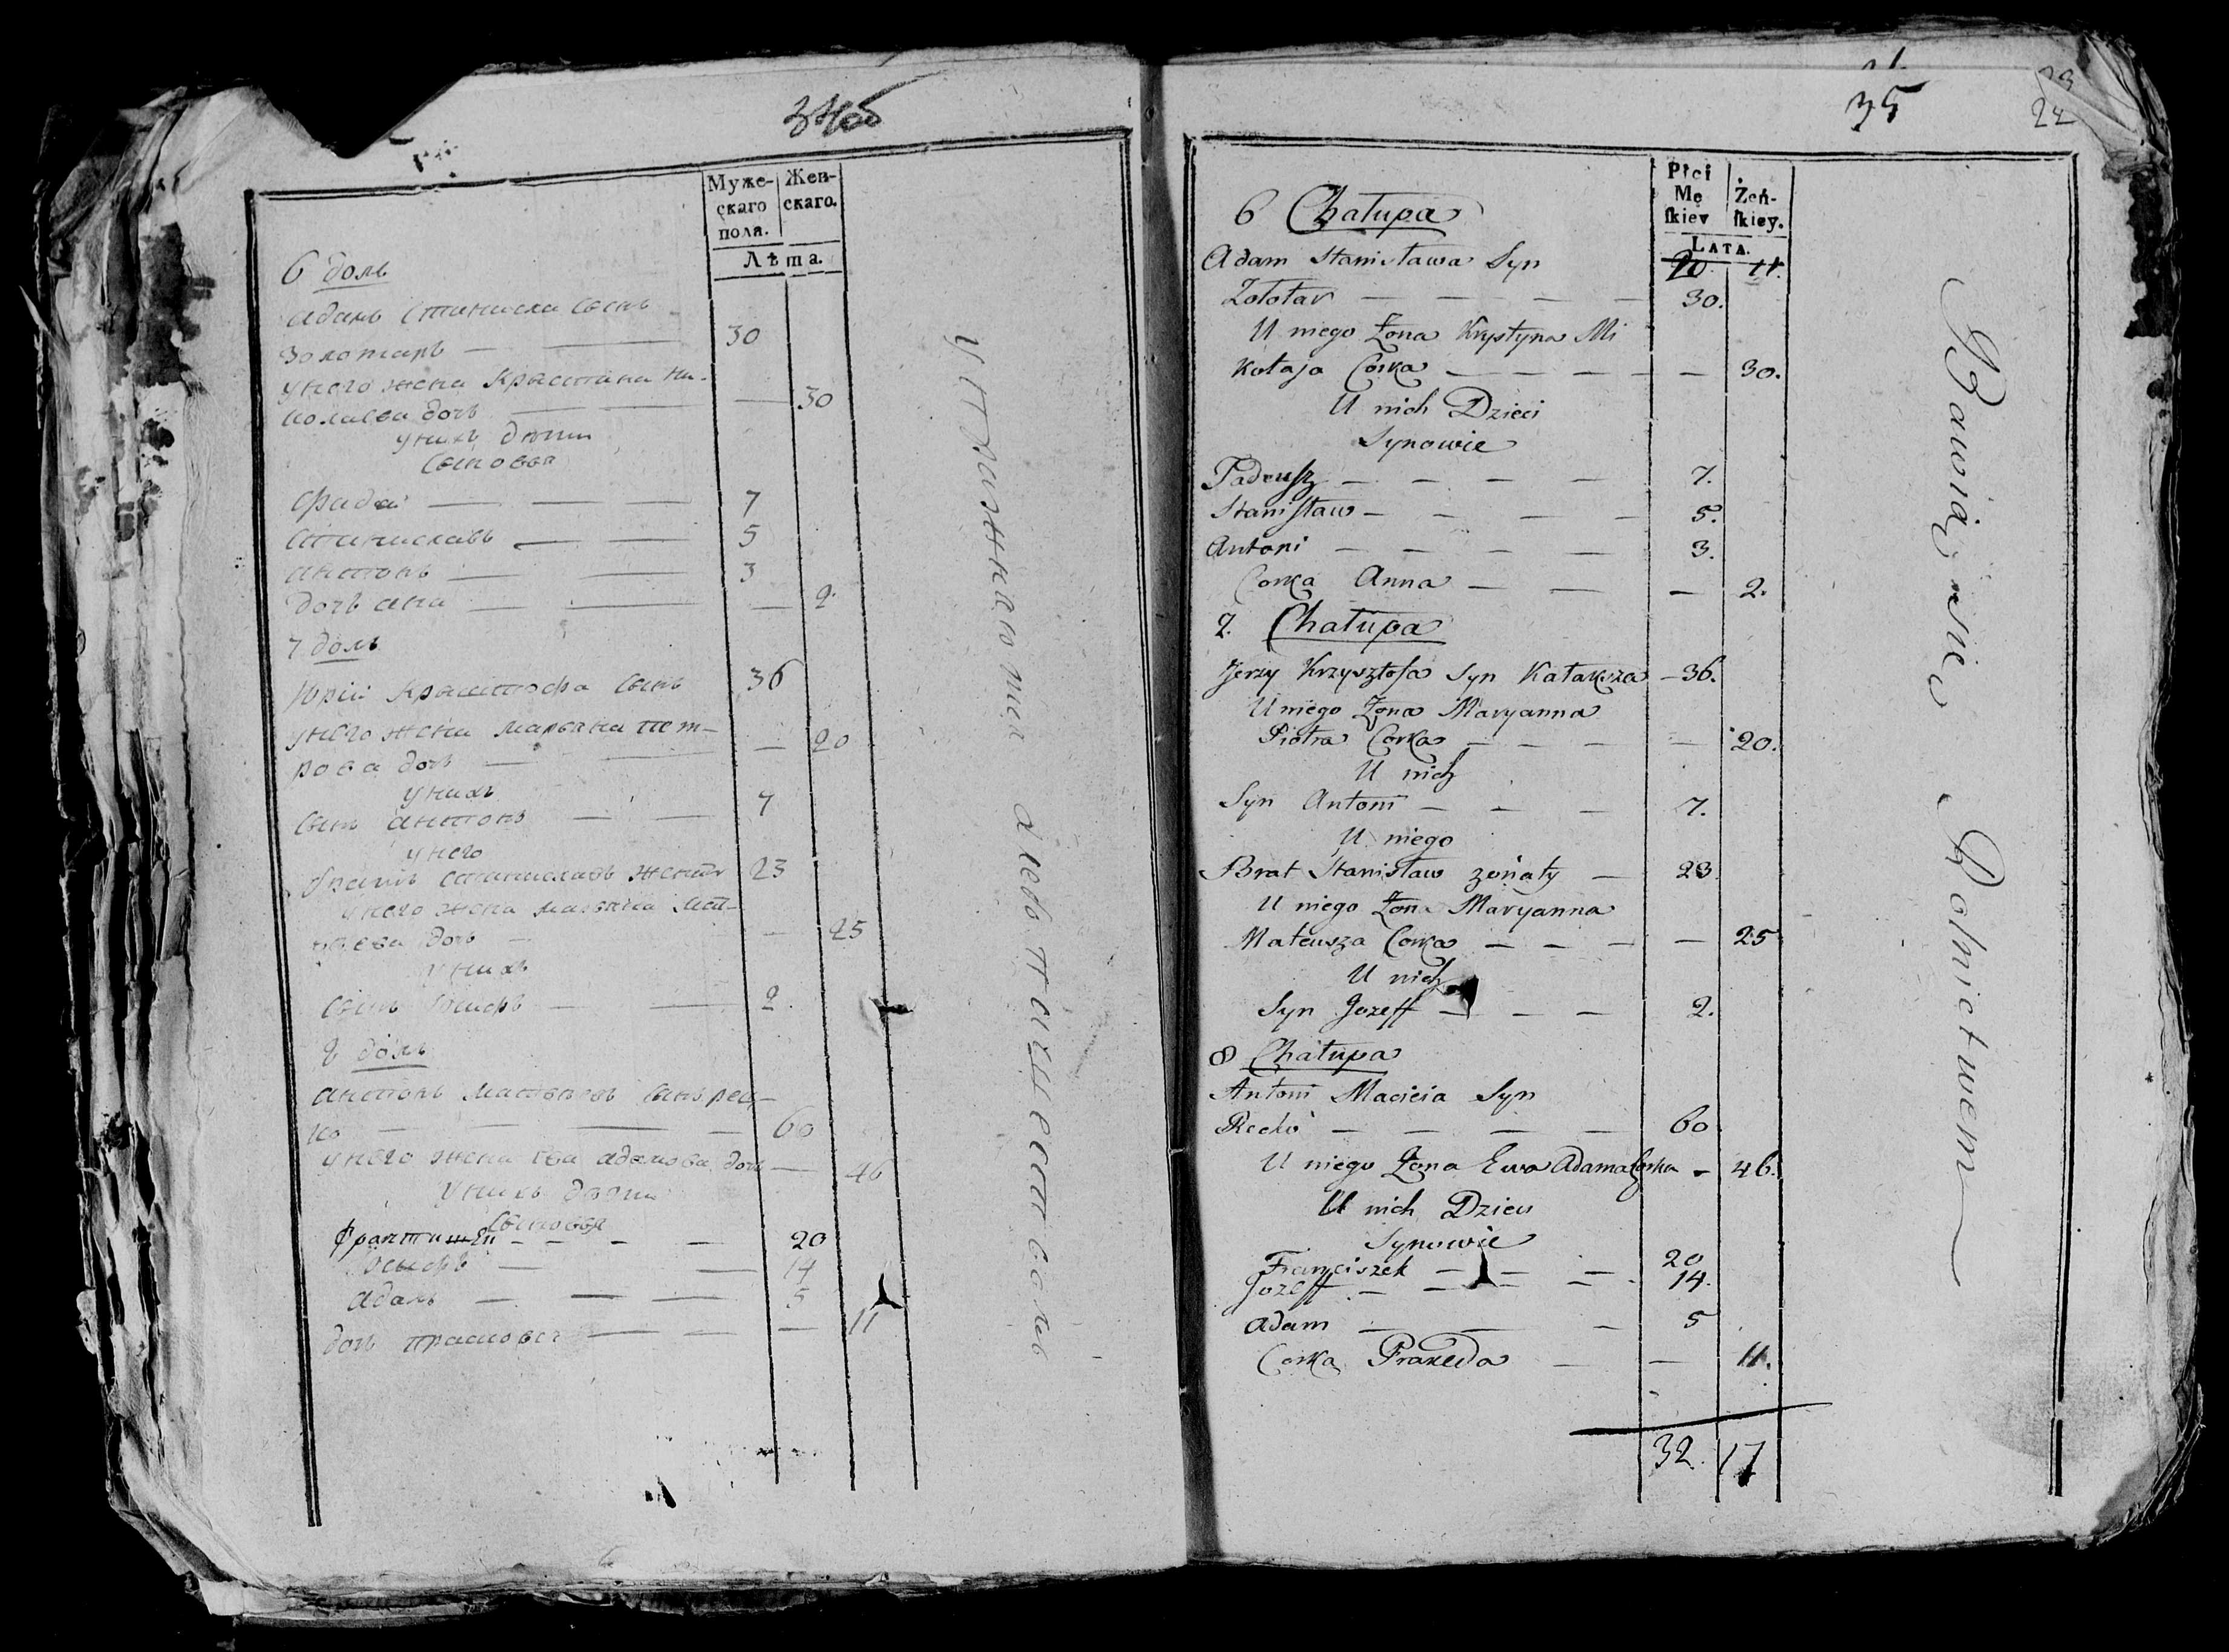 34об
Муже-
скаго
пола.
Жен-
скаго.
Лѣта.
6 домъ
адамъ Станисла сынъ
Золотаръ — — 30
унего жена Крыстина Ни-
колаева дочъ — — — 30
унихъ дѣти
Сыновья
Фадей — — 7
Станиславъ — — 5
антонъ — — 3
дочъ ана — — — 2
7 домъ
Юрiй Крыштофа Сынъ 36
унего жена Марьяна пет-
рова дочъ — — — 20
унихъ
Сынъ антонъ — — 7
унего
братъ Станиславъ женатъ 23
унего жена Марьяна Мат-
дочъ — — 25
унихъ
Сынъ — — 2
8 домъ
антонъ Матвеевъ Сынъ рец-
ко — — — — 60
унего жена Ева адамова дочъ — 46
унихъ дѣти
Сыновья
Франтишеи — — — — 20
— — 14
адамъ — — — 5
дочъ — — — 11
упражнаются хлебопашеством
35
22
Płci
Mę
ſkiey
Żeń-
ſkiey.
LATA.
6 Chałupa
20. 11.
Adam Stanisława Syn
Zołotar — — — — 30.
U niego Żona Krystyna Mi
kołaja Corka — — — — — 30.
U nich Dzieci
Synowie
Tadeuſz — — — — 7.
Staniſław — — — — 5.
Antoni — — — — 3.
Corka Anna — — — 2.
7. Chałupa
Jerzy Krzysztofa Syn Katarsza — 36.
U niego Żona Maryanna
Piotra Corka — — — — 20.
U nich
Syn Antoni — — — 7.
U niego
Brat Stanisław żonaty — 23.
U niego Żona Maryanna
Mateusza Corka — — — — 25
U nich
Syn Jozeff — — — 2.
8 Chałupa
Antoni Macieia Syn
Recko — — — — 60
U niego Żona Ewa Adama Corka — 46.
U nich Dzieci
Synowie
Franciszek — — — 20
Jozeff — — — — 14.
Adam — — — 5
Corka Praxeda — — 11.
32. 17
Bawią się Rolnictwem